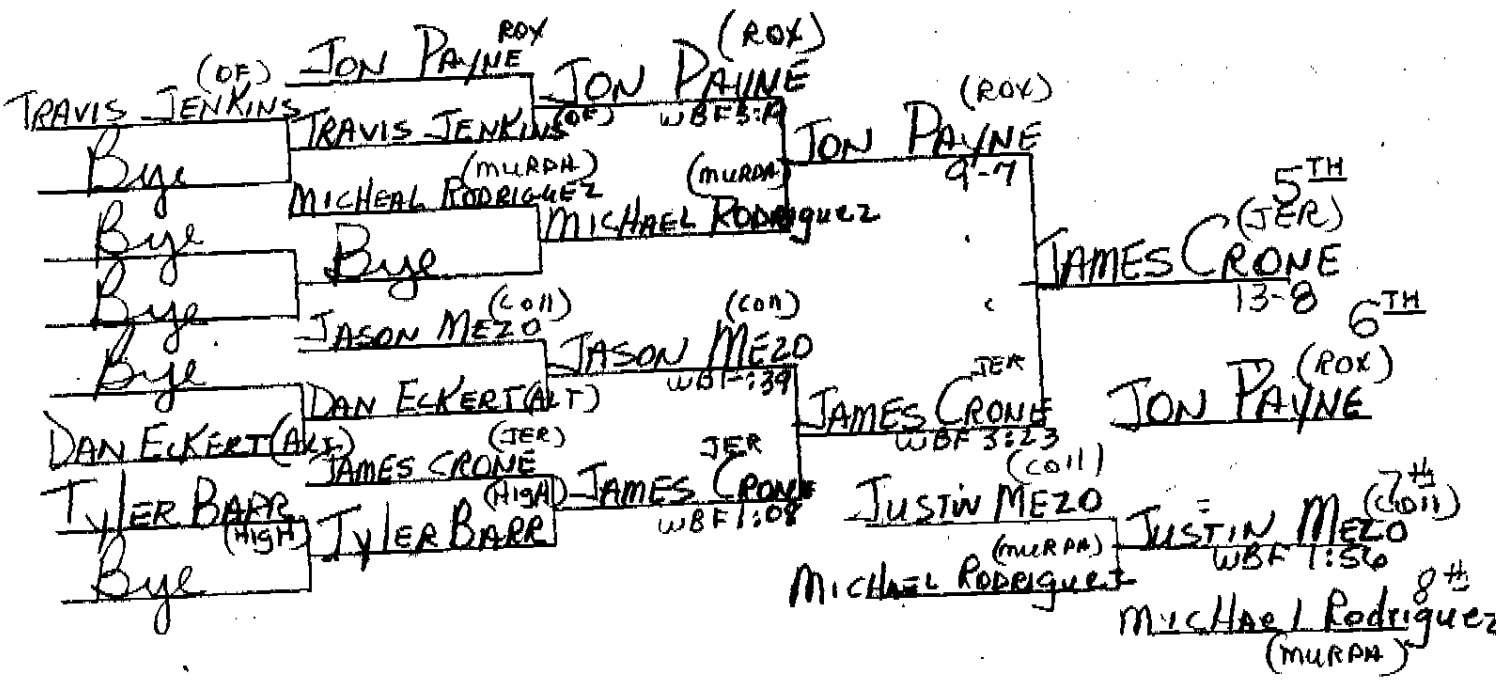 TRAVIS JENKINS (OF)
Bye
Bye
Bye
Bye
DAN ECKERT (ALT)
TYLER BARR (HIGH)
Bye
JON PAYNE ROX
TRAVIS JENKINS (OF)
MICHEAL RODRIGUEZ (MURPH)
Bye
JASON MEZO (COLL)
DAN ECKERT (ALT)
JAMES CRONE (JER)
TYLER BARR (HIGH)
JON PAYNE (ROX)
WBF
MICHAEL RODRIGUEZ (MURPH)
JASON MEZO (COLL)
WBF :39
JAMES CRONE JER
WBF 1:08
JON PAYNE (ROX)
9-7
JAMES CRONE JER
WBF 3:23
JAMES CRONE (JER) 5TH
13-8
6TH
JON PAYNE (ROX)
JUSTIN MEZO (COLL)
MICHAEL RODRIGUEZ (MURPH)
JUSTIN MEZO (COLL) 7th
WBF 1:56
8th
MICHAEL Rodriguez
(MURPH)